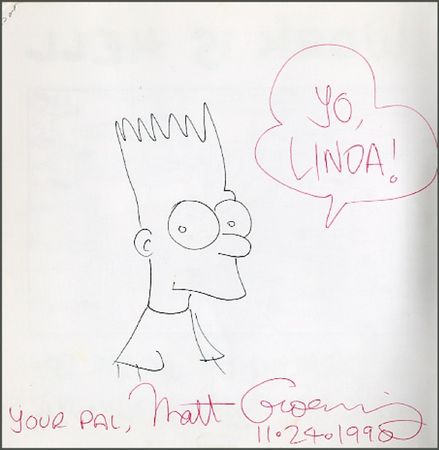 YO,
LINDA!
YOUR PAL, Matt Groening
11.24.1998